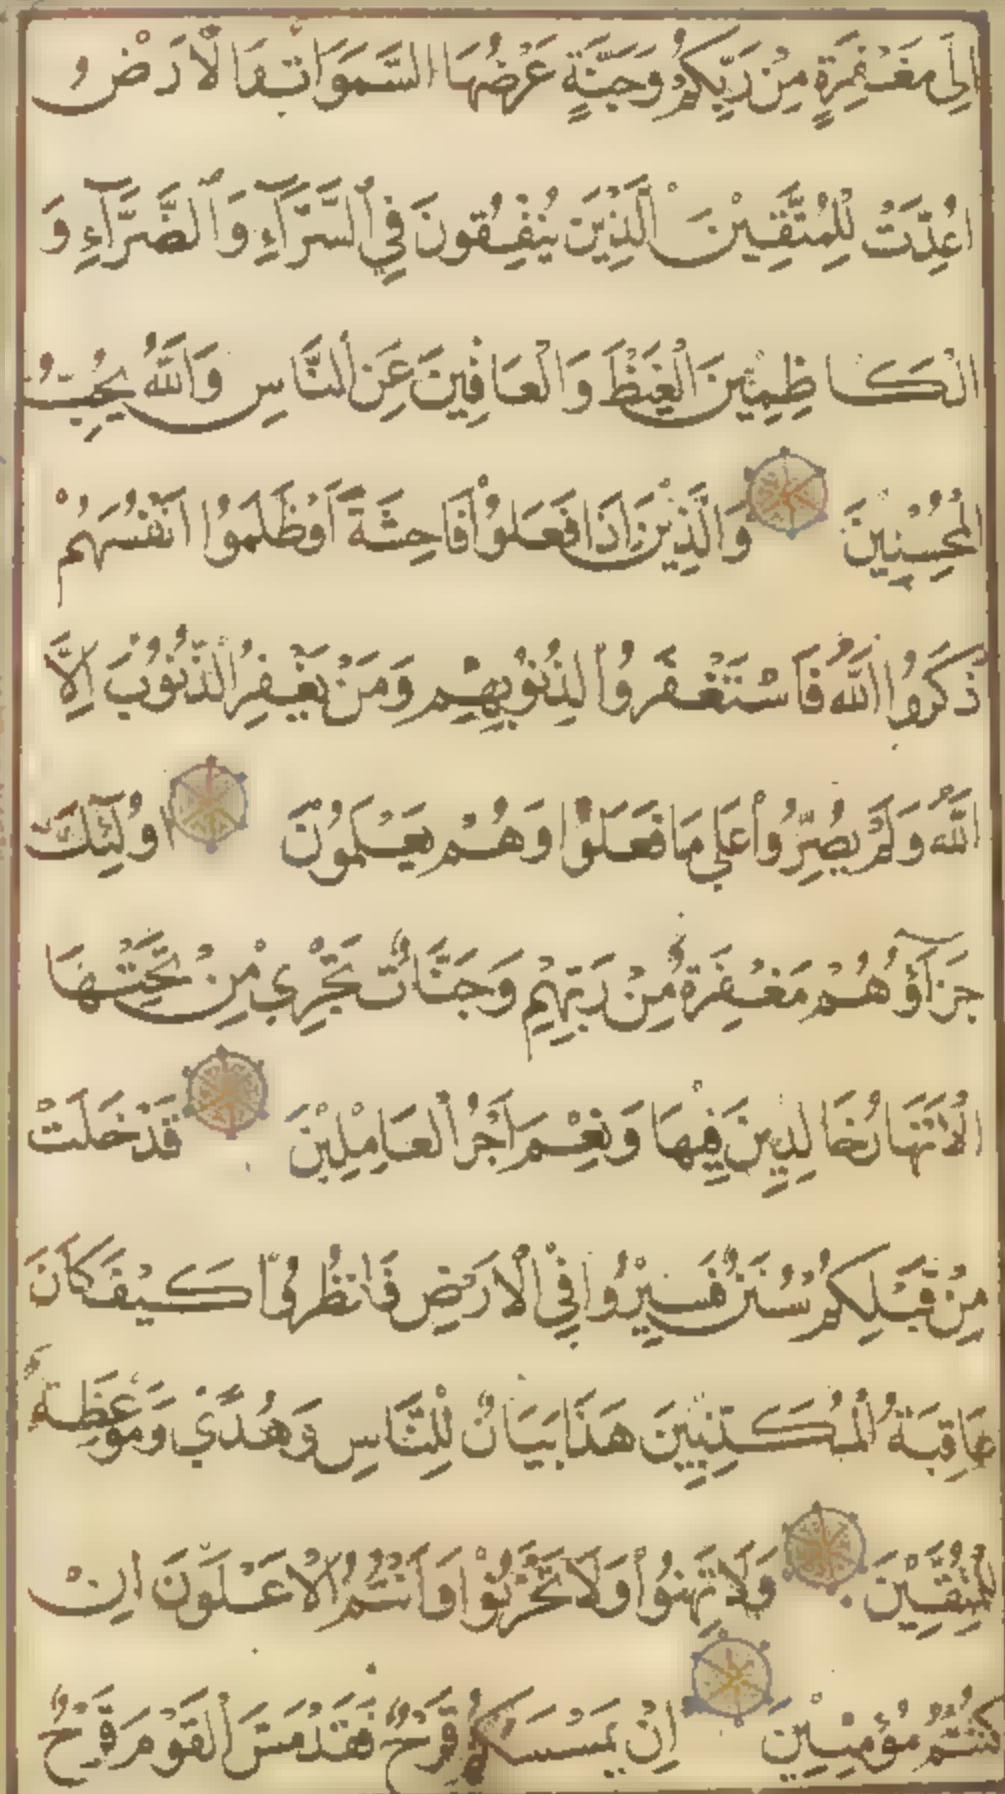 اِلَى مَغْفِرَةٍ مِنْ رَبِّكُمْ وَجَنَّةٍ عَرْضُهَا السَّمَوَاتُ وَالْاَرْضُ
اُعِدَّتْ لِلْمُتَّقِيْنَ الَّذِيْنَ يُنْفِقُونَ فِي السَّرَّآءِ وَالضَّرَّآءِ وَ
الْكَاظِمِيْنَ الْغَيْظَ وَالْعَافِينَ عَنِ النَّاسِ وَاللّٰهُ يُحِبُّ
الْمُحْسِنِينَ وَالَّذِيْنَ اِذَا فَعَلُوْا فَاحِشَةً اَوْ ظَلَمُوا اَنْفُسَهُمْ
ذَكَرُوا اللّٰهَ فَاسْتَغْفَرُوا لِذُنُوْبِهِمْ وَمَنْ يَغْفِرُ الذُّنُوْبَ اِلَّا
اللّٰهُ وَلَمْ يُصِرُّوا عَلَى مَا فَعَلُوْا وَهُمْ يَعْلَمُوْنَ اُولَئِكَ
جَزَآؤُهُمْ مَغْفِرَةٌ مِنْ رَبِّهِمْ وَجَنَّاتٌ تَجْرِي مِنْ تَحْتِهَا
الْاَنْهَارُ خَالِدِينَ فِيْهَا وَنِعْمَ اَجْرُ الْعَامِلِيْنَ قَدْ خَلَتْ
مِنْ قَبْلِكُمْ سُنَنٌ فَسِيْرُوا فِي الْاَرْضِ فَانْظُرُوْا كَيْفَ كَانَ
عَاقِبَةُ الْمُكَذِّبِيْنَ هَذَا بَيَانٌ لِلنَّاسِ وَهُدًى وَمَوْعِظَةٌ
لِلْمُتَّقِيْنَ وَلَا تَهِنُوْا وَلَا تَحْزَنُوْا وَاَنْتُمُ الْاَعْلَوْنَ اِنْ
كُنْتُمْ مُؤْمِنِيْنَ اِنْ يَمْسَسْكُمْ قَرْحٌ فَقَدْ مَسَّ الْقَوْمَ قَرْحٌ